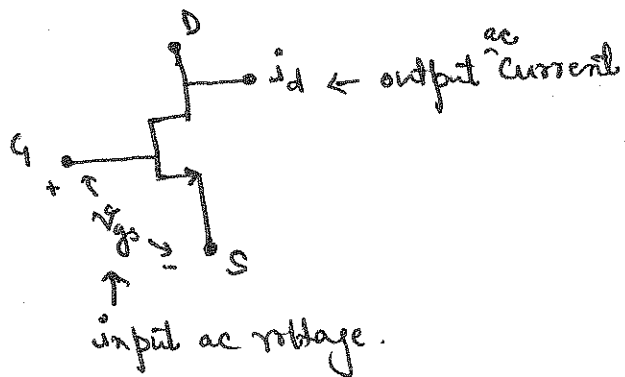 D
i_d ← output ac current
G
+
v_gs
-
S
input ac voltage.